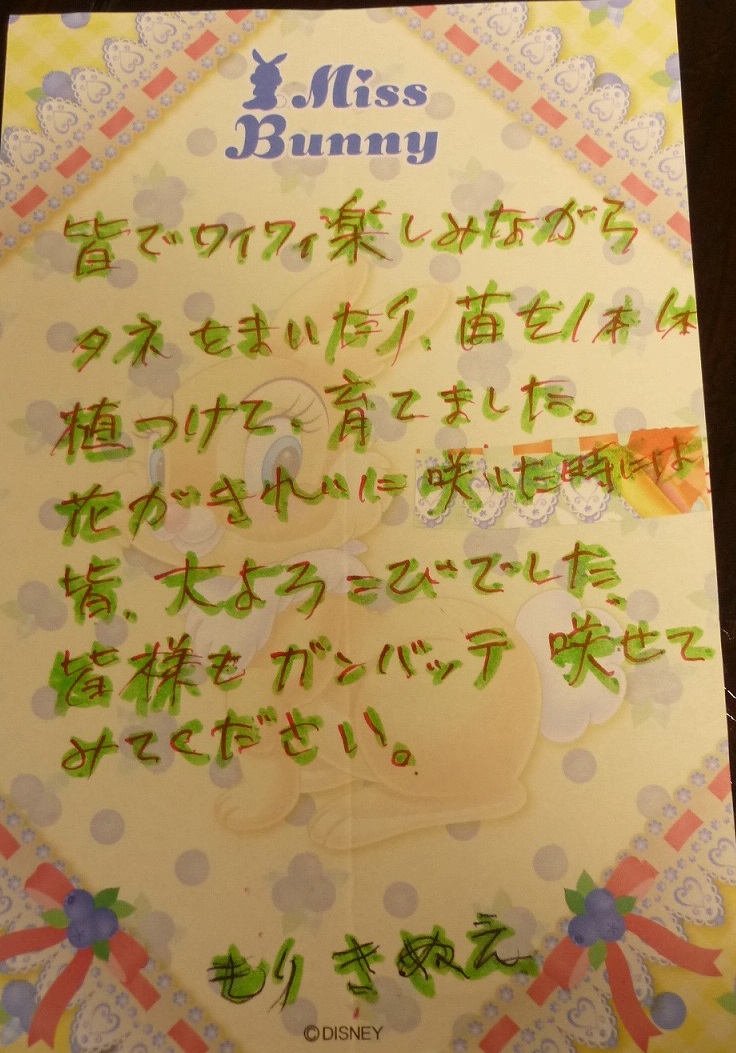 Miss
Bunny
皆でワイワイ楽しみながら
タネをまいたり、苗を1本1本
植つけて、育てました。
花がきれいに咲いた時には
皆、大よろこびでした、
皆様もガンバッテ咲せて
みてください。
もりきぬえ
©DISNEY